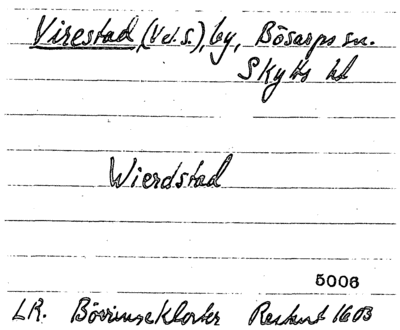 Virestad, (V. o. S.), by, Bösarps sn.
Skytts hd
Wierdstad
5006
LR. Börringe Kloster Restant 1603